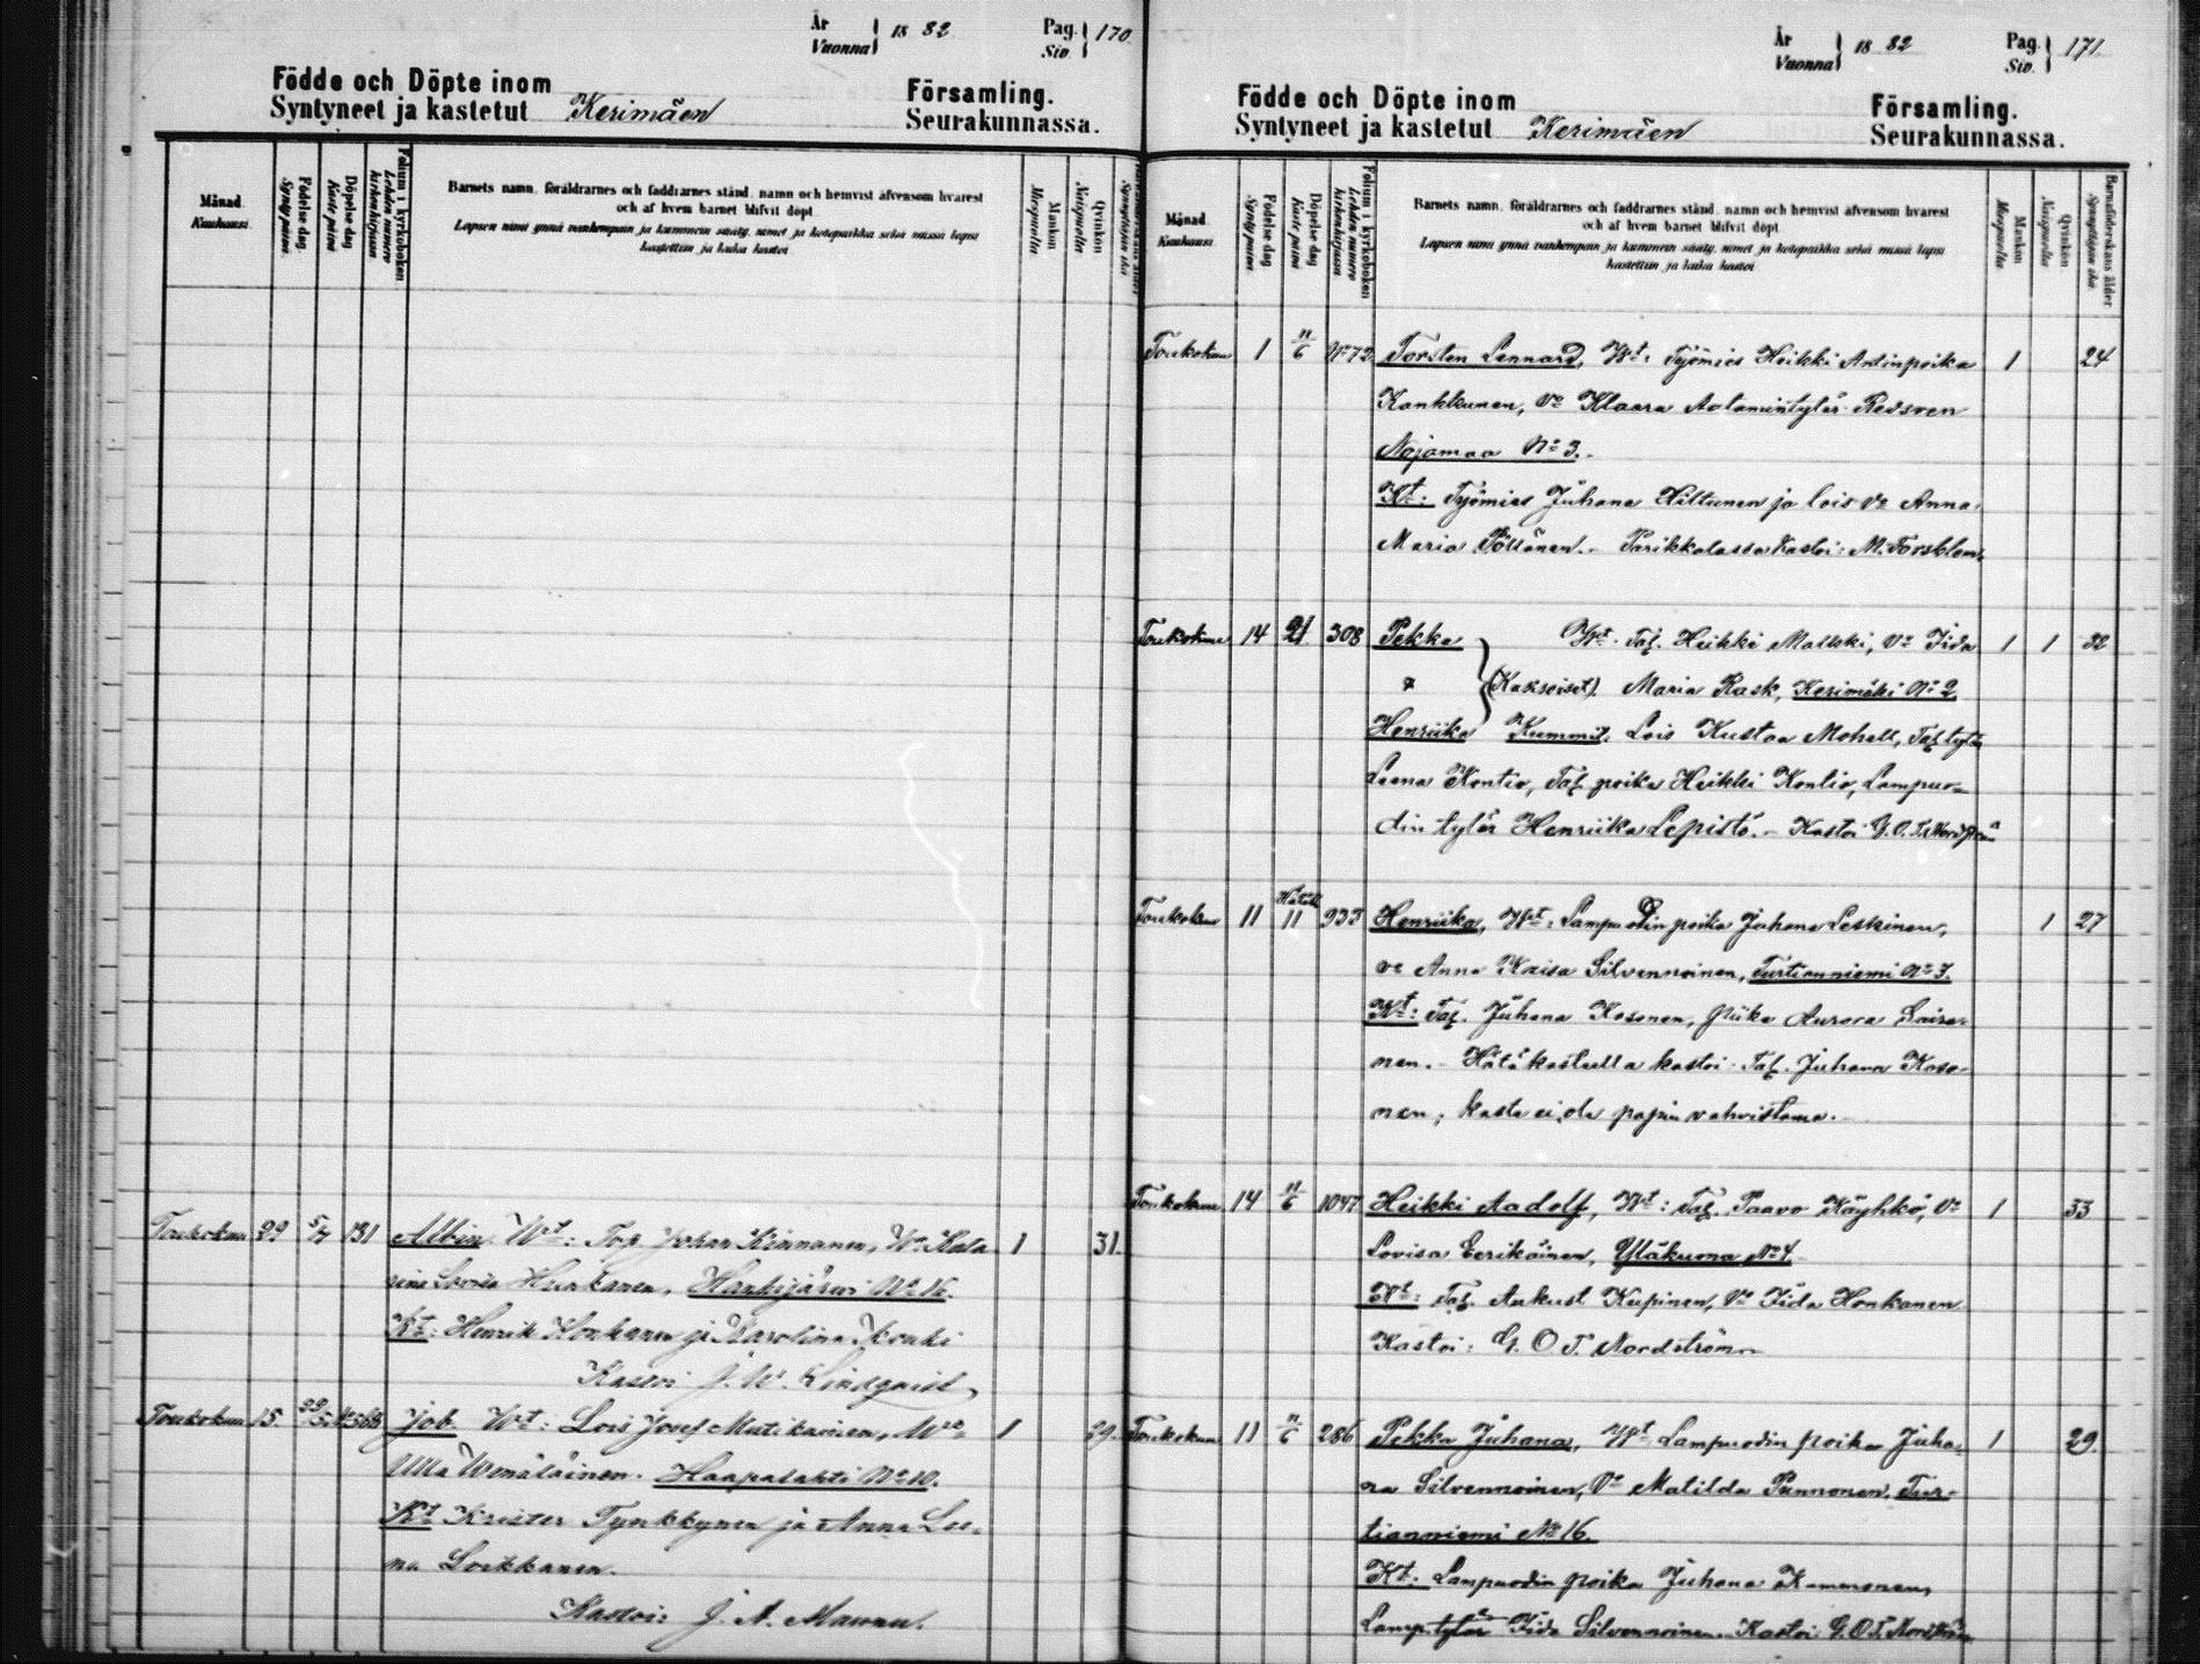 År Vuonna 1882 Pag. Siv. 170
Födde och Döpte inom Församling.
Syntyneet ja kastetut Kerimäen Seurakunnassa.
Månad Kuukausi
Födelse dag Synty päivä
Döpelse dag Kaste päivä
Folium i kyrkoboken Lehden numero kirkonkirjassa
Barnets namn, föräldrarnes och faddrarnes stånd, namn och hemvist äfvensom hvarest
och af hvem barnet blifvit döpt
Lapsen nimi ynnä vanhempain ja kummein sääty, nimet ja kotopaikka sekä missä lapsi
kastettiin ja kuka kastoi
Mankön Miespuolta
Qvinkön Naispuolta
Toukokuu 29 5/7 131 Albin Wt: Johan Kinnunen, Wo Kata 1 31
Hankijärvi No 16.
Kt: Henrik Honkanen ja Karolina
Kastoi J. W. Lindqvist
Toukokuu 15. 29/5 Job Wt: Lois Josef Mutikainen, Wo 1 29
Ulla Wenäläinen. Haapalahti No 10.
Kt Krister Tynkkynen ja Anna Lee-
na Loikkanen.
Kastoi: J. A. Mannu.
År Vuonna 1882 Pag. Siv. 171
Födde och Döpte inom Församling.
Syntyneet ja kastetut Kerimäen Seurakunnassa.
Månad Kuukausi
Födelse dag Synty päivä
Döpelse dag Kaste päivä
Folium i kyrkoboken Lehden numero kirkonkirjassa
Barnets namn, föräldrarnes och faddrarnes stånd, namn och hemvist äfvensom hvarest
och af hvem barnet blifvit döpt
Lapsen nimi ynnä vanhempain ja kummein sääty, nimet ja kotopaikka sekä missä lapsi
kastettiin ja kuka kastoi
Mankön Miespuolta
Qvinkön Naispuolta
Barnaföderskans ålder Synnyttäjän ikä
Toukokuu 1 11/6 No 72 Torsten Lennard, Wt: Työmies Heikki Antinpoika 1 24
Kankkunen, Vo Klaara Aatamintytär Redsven
Nojamaa No 3.
Kt: Työmies Juhana Hiltunen ja lois Vo Anna
Maria Pöllänen. Parikkalassa Kastoi: M. Forsblom.
Toukokuu 14 21 308 Pekka Wt. Tal. Heikki Malkki, Vo Iida 1 1 32
(Kaksoiset) Maria Rask, Kerimäki No 2
Henriika Kummit. Lois Kustaa Mohell, Tal. tytär
Leena Kontio, Tal. poika Heikki Kontio, Lampuo-
din tytär Henriika Lepistö. Kastoi G. O. T. Nordström
Toukokuu 11 Hätäk. 11 933 Henriika, Wt: Lampuodin poika Juhana Leskinen, 1 27
Vo Anna Kaisa Silvennoinen, Turtianniemi No 3.
Kt: Tal. Juhana Kosonen, piika Aurora Saira-
nen. Hätäkasteella kastoi Tal. Juhana Koso-
nen; kaste ei ole papin vahvistama.
Toukokuu 14 11/6 1047 Heikki Aadolf, Wt: Tal. Paavo Käyhkö, Vo 1 33
Lovisa Eerikäinen, Yläkuona No 4
Kt: Tal. Aukust Kupinen, Vo Iida Honkanen
Kastoi: G. O. T. Nordström
Toukokuu 11 11/6 286 Pekka Juhana, Wt Lampuodin poika Juha- 1 29
na Silvennoinen, Vo Matilda Punnonen, Tur-
tianniemi No 16.
Kt: Lampuodin poika Juhana Kammonen,
Lamp. tytär Iida Silvennoinen. Kastoi G. O. T. Nordström